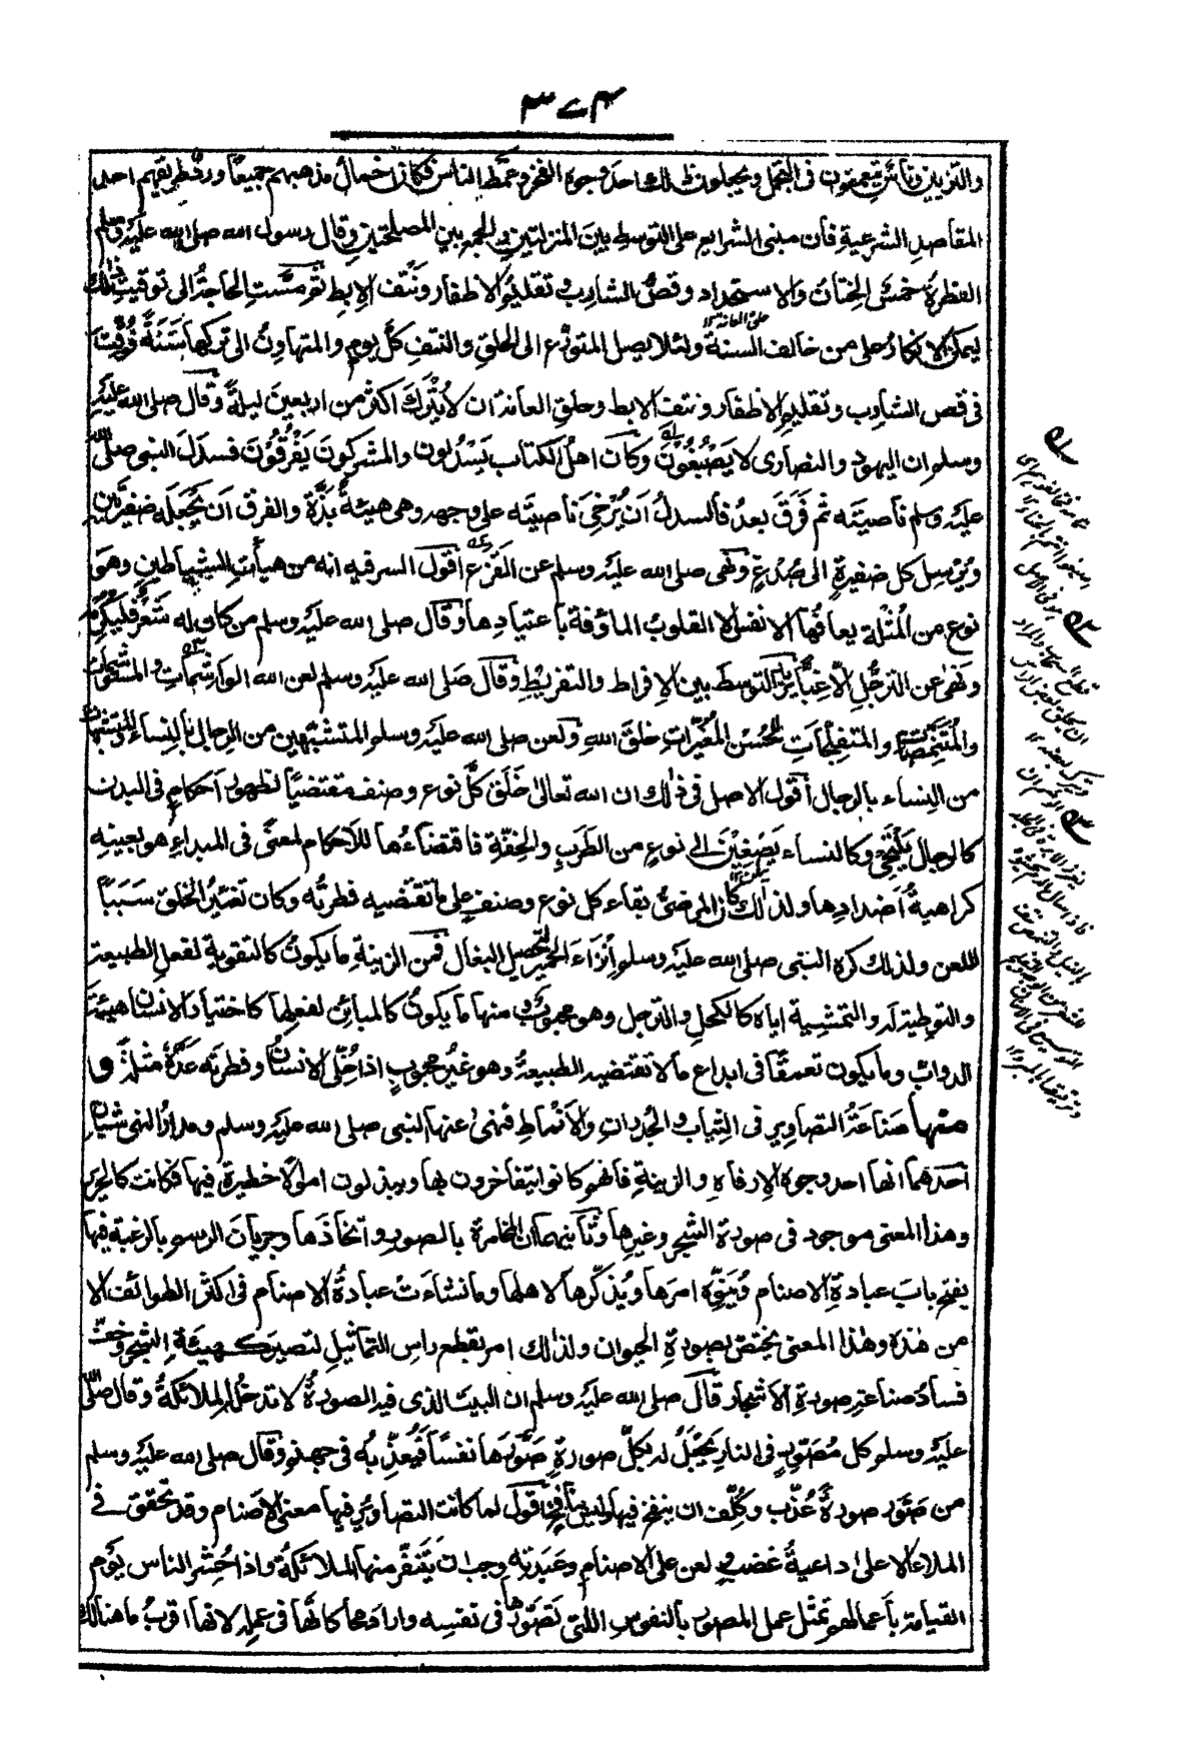 ۳۷۴
والتزيين وناس يتعمقون فى التجمل ويجعلون ذلك احد وجوه الفخر وغمط الناس فكان اخمال مذهبهم جميعًا ورد طريقهم احد
المقاصد الشرعية فان مبنى الشرايع على التوسط بين المنزلتين والجمع بين المصلحتين وقال رسول الله صلى الله عليه وسلم
الفطرة خمس الختان والاستحداد وقص الشارب وتقليم الاظفار ونتف الابط ثم مست الحاجة الى توقيت ذلك
ليمكن الانكار على من خالف السنة ولئلا يصل المتورع الى الحلق والنتف كل يوم والمتهاون الى تركها سنة فوقت
فى قص الشارب وتقليم الاظفار ونتف الابط وحلق العانة ان لا يترك اكثر من اربعين ليلة وقال صلى الله عليه
وسلم ان اليهود والنصارى لا يصبغون وكان اهل الكتاب يسدلون والمشركون يفرقون فسدل النبى صلى الله
عليه وسلم ناصيته ثم فرق بعد فالسدل ان يرخى ناصيته على وجهه وهى هيئة بذة والفرق ان يجعله ضفيرتين
ويرسل كل ضفيرة الى صدغ ونهى صلى الله عليه وسلم عن القزع اقول السر فيه انه من هيأت الشياطين وهو
نوع من المثلة يعافها الانفس الا القلوب المأوفة باعتيادها وقال صلى الله عليه وسلم من كان له شعر فليكرمه
ونهى عن الترجل الا غبا يريد التوسط بين الافراط والتفريط وقال صلى الله عليه وسلم لعن الله الواشمات والمستوشمات
والمتنمصات والمتفلجات للحسن المغيرات خلق الله ولعن صلى الله عليه وسلم المتشبهين من الرجال بالنساء والمتشبهات
من النساء بالرجال اقول الاصل فى ذلك ان الله تعالى خلق كل نوع وصنف مقتضيا لظهور احكام فى البدن
كالرجال يلتحى وكالنساء يصغين الى نوع من الطرب والخفة فاقتضاءها للاحكام لمعنى فى المبدء هو بعينه
كراهية اضدادها ولذلك كان المرضى بقاء كل نوع وصنف على ما تقتضيه فطرته وكان تغيير الخلق سببًا
للعن ولذلك كره النبى صلى الله عليه وسلم انزاء الحمير لتحصيل البغال فمن الزينة ما يكون كالتقوية لفعل الطبيعة
والتوطية له والتمشية اياه كالكحل والترجل وهو محبوب ومنها ما يكون كالمباين لفعلها كاختيار الانسان هيئة
الدواب وما يكون تعمقا فى ابداع ما لا تقتضيه الطبيعة وهو غير محبوب اذا خلى الانسان وفطرته عده مثلة و
منها صناعة التصاوير فى الثياب والجدران والانماط فنهى عنها النبى صلى الله عليه وسلم ومدار النهى شيئان
احدهما انها احد وجوه الارفاه والزينة فانهم كانوا يتفاخرون بها ويبذلون اموالا خطيرة فيها فكانت كالحرير
وهذا المعنى موجود فى صورة الشجر وغيرها وثانيهما ان المخامرة بالصور واتخاذها وجريان الرسم بالرغبة فيها
يفتح باب عبادة الاصنام وينوه امرها ويذكرها لاهلها وما نشات عبادة الاصنام فى اكثر الطوائف الا
من هذه وهذا المعنى يختص بصورة الحيوان ولذلك امر بقطع راس التماثيل لتصير كهيئة الشجر وخف
فساد صناعة صورة الاشجار قال صلى الله عليه وسلم ان البيت الذى فيه الصورة لا تدخله الملائكة وقال صلى الله
عليه وسلم كل مصور فى النار يجعل له بكل صورة صورها نفسا فيعذبه فى جهنم وقال صلى الله عليه وسلم
من صور صورة عذب وكلف ان ينفخ فيها وليس بنافخ اقول لما كانت التصاوير فيها معنى الاصنام وقد تحقق فى
الملاء الاعلى داعية غضب ولعن على الاصنام وعبدتها وجب ان يتنفر منها الملائكة واذا حشر الناس يوم
القيامة باعمالهم تمثل عمل المصور بالنفوس التى تصورها فى نفسه واراد محاكاتها فى عمله لانها اقرب ما هنالك